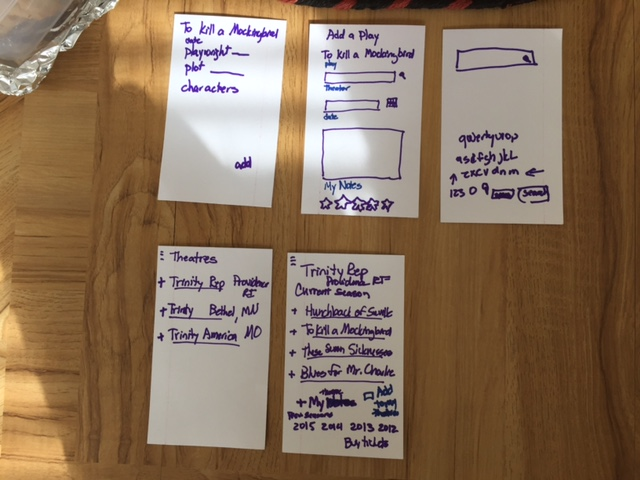 To Kill a Mockingbird
date
playwright
plot
characters
add
Add a Play
To Kill a Mockingbird
play
Theater
date
My Notes
qwertyuiop
asdfghjkL
zxcvbnm
123
Search
Theatres
+ Trinity Rep Providence
RI
+ Trinity Bethel, MN
+ Trinity America MO
Trinity Rep
Providence RI
Current Season
+ Hunchback of
+ To Kill a Mockingbird
+ These Seven Sicknesses
+ Blues for Mr. Charlie
+ My
Add
2015 2014 2013 2012
Buy tickets